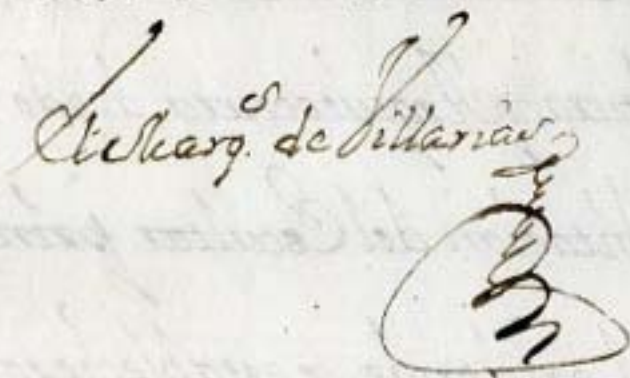 El Marq.s de Villarias